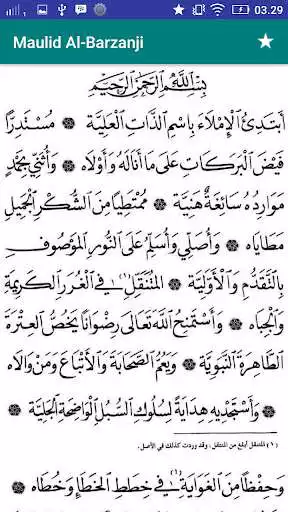 03.29
Maulid Al-Barzanji
بِسْمِ اللَّهِ الرَّحْمٰنِ الرَّحِيْمِ
أَبْتَدِئُ الْإِمْلَاءَ بِاسْمِ الذَّاتِ الْعَلِيَّةِ ۞ مُسْتَدِرًّا
فَيْضَ الْبَرَكَاتِ عَلَى مَا أَنَالَهُ وَأَوْلَاهُ ۞ وَأُثَنِّي بِحَمْدٍ
مَوَارِدُهُ سَائِغَةٌ هَنِيَّةٌ ۞ مُمْتَطِيًا مِنَ الشُّكْرِ الْجَمِيْلِ
مَطَايَاهُ ۞ وَأُصَلِّي وَأُسَلِّمُ عَلَى النُّوْرِ الْمَوْصُوْفِ
بِالتَّقَدُّمِ وَالْأَوَّلِيَّةِ ۞ الْمُتَنَقِّلِ (١) فِي الْغُرَرِ الْكَرِيْمَةِ
وَالْجِبَاهِ ۞ وَأَسْتَمْنِحُ اللَّهَ تَعَالَى رِضْوَانًا يَخُصُّ الْعِتْرَةَ
الطَّاهِرَةَ النَّبَوِيَّةَ ۞ وَيَعُمُّ الصَّحَابَةَ وَالْأَتْبَاعَ وَمَنْ وَالَاهُ
۞ وَأَسْتَجْدِيْهِ هِدَايَةً لِسُلُوْكِ السُّبُلِ الْوَاضِحَةِ الْجَلِيَّةِ ۞
(١) المتنقل أبلغ من المنتقل، وقد وردت كذلك في الأصل.
وَحِفْظًا مِنَ الْغَوَايَةِ (٦) فِي خِطَطِ الْخَطَإِ وَخُطَاهُ ۞